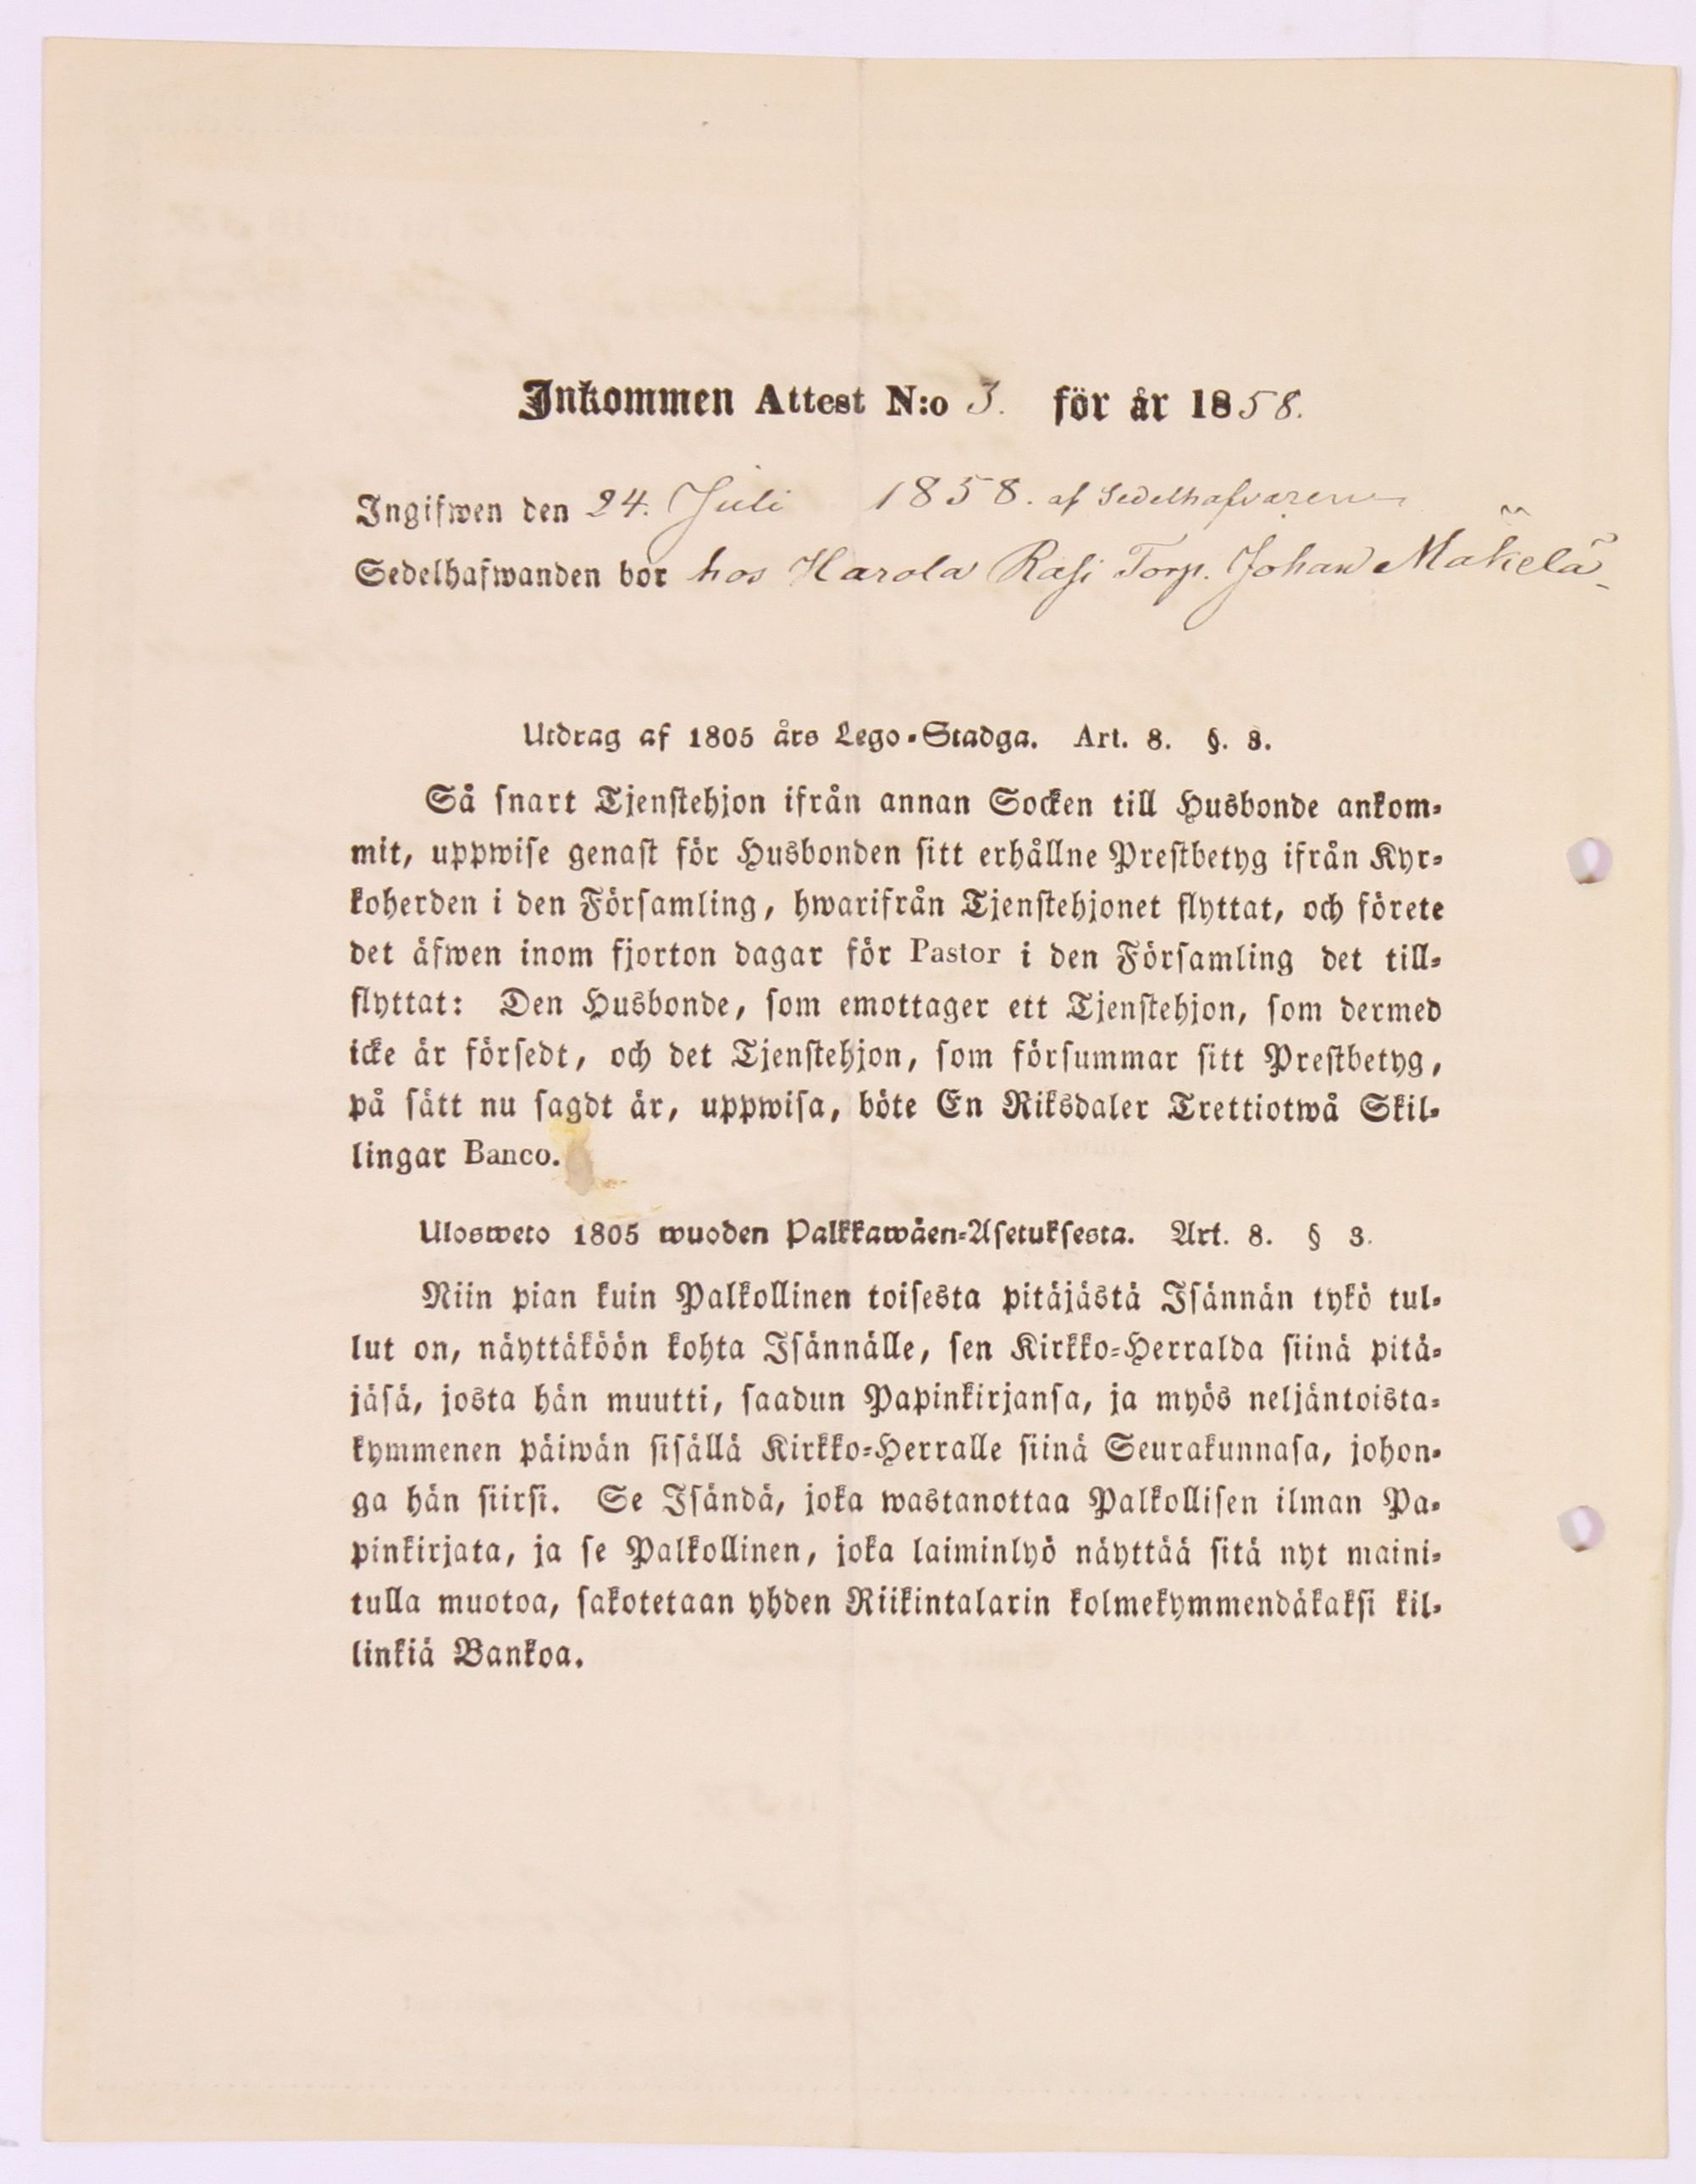 Inkommen Attest N:o 3. för år 1858.
Ingifwen den 24. Juli 1858. af Sedelhafvaren
Sedelhafwanden bor hos Harola Rasi Torp. Johan Mäkelä
Utdrag af 1805 års Lego-Stadga. Art. 8. §. 3.
Så snart Tjenstehjon ifrån annan Socken till Husbonde ankom-
mit, uppwise genast för Husbonden sitt erhållne Prestbetyg ifrån Kyr-
koherden i den Församling, hwarifrån Tjenstehjonet flyttat, och förete
det äfwen inom fjorton dagar för Pastor i den Församling det till-
flyttat: Den Husbonde, som emottager ett Tjenstehjon, som dermed
icke är försedt, och det Tjenstehjon, som försummar sitt Prestbetyg,
på sätt nu sagdt är, uppwisa, böte En Riksdaler Trettiotwå Skil-
lingar Banco.
Ulosweto 1805 wuoden Palkkawäen-Asetuksesta. Art. 8. § 3.
Niin pian kuin Palkollinen toisesta pitäjästä Isännän tykö tul-
lut on, näyttäköön kohta Isännälle, sen Kirkko-Herralda siinä pitä-
jäsä, josta hän muutti, saadun Papinkirjansa, ja myös neljäntoista-
kymmenen päiwän sisällä Kirkko-Herralle siinä Seurakunnasa, johon-
ga hän siirsi. Se Isändä, joka wastanottaa Palkollisen ilman Pa-
pinkirjata, ja se Palkollinen, joka laiminlyö näyttää sitä nyt maini-
tulla muotoa, sakotetaan yhden Riikintalarin kolmekymmendäkaksi kil-
linkiä Bankoa.